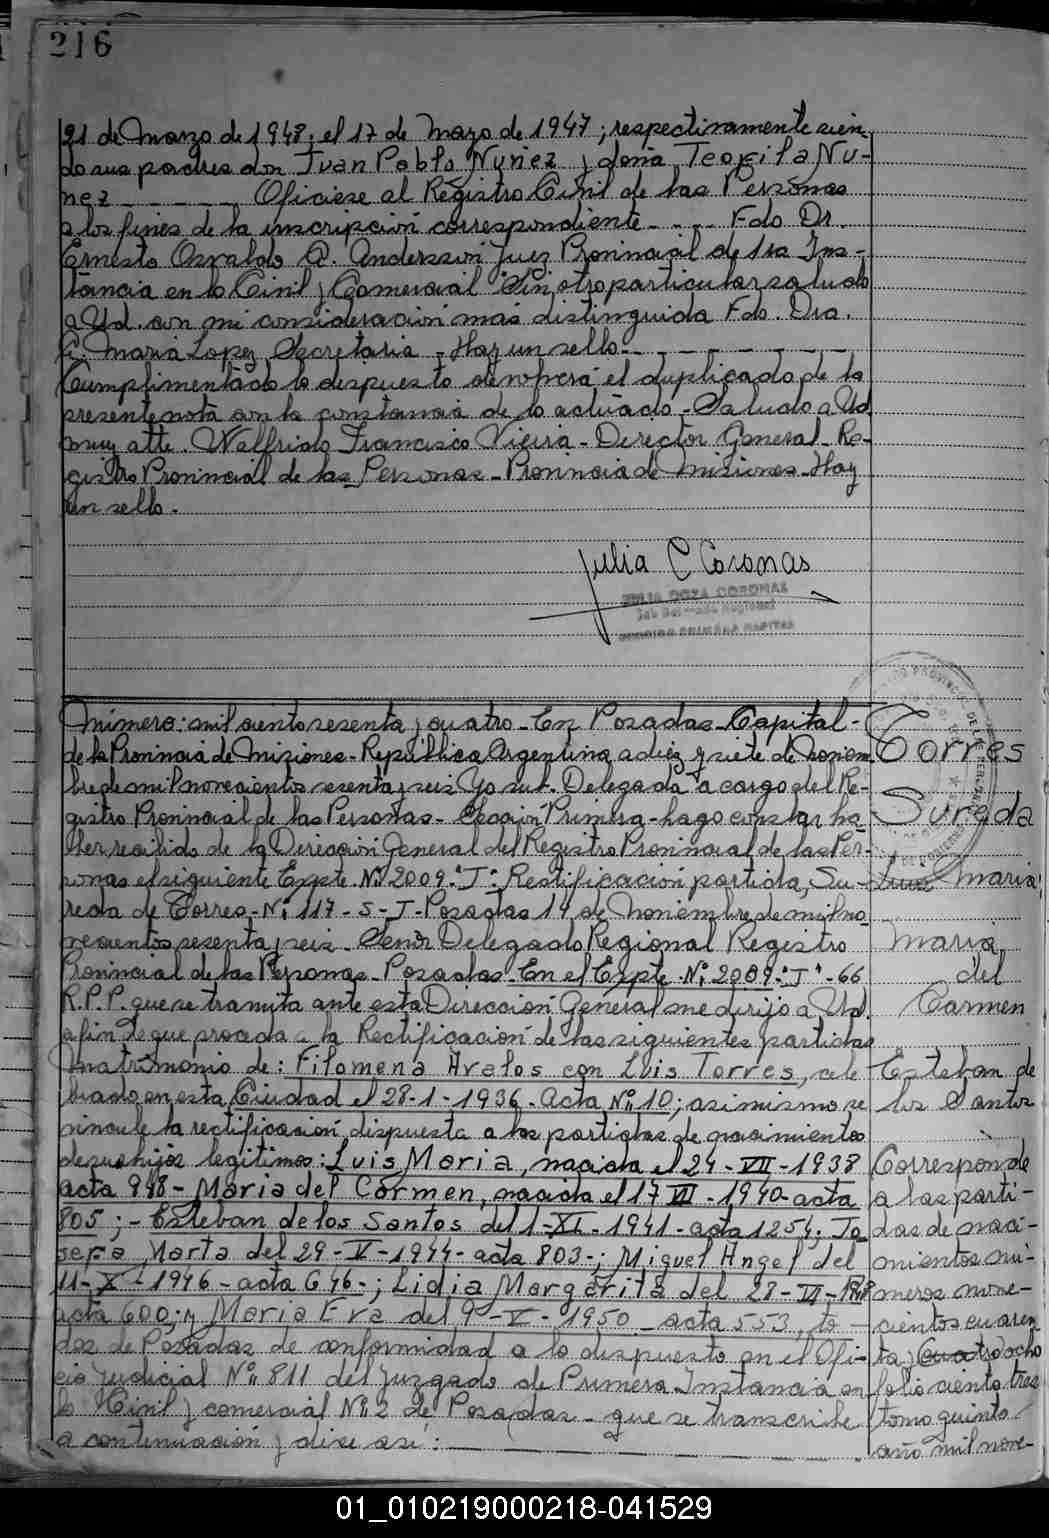 216
21 de Marzo de 1948; el 17 de Mayo de 1947; respectivamente sien-
do sus padres don Juan Pablo Nuñez y doña Teofila Nu-
ñez _ _ _ _ _ Oficiese al Registro Civil de las Personas
a los fines de la inscripción correspondiente _ . _ . _ Fdo Dr.
Ernesto Osvaldo A. Andersson Juez Provincial de 1ra Ins-
tancia en lo Civil y Comercial Sin otro particular saludo
a Ud. con mi consideracion mas distinguida Fdo. Dra.
Maria Lopez Secretaria - Hay un sello _ _ _ _ _ _
Cumplimentado lo dispuesto devolverá el duplicado de la
presente nota con la constancia de lo actuado - Saludo a Ud
muy atte. Walfrido Francisco Vieira - Director General - Re-
gistro Provincial de las Personas - Provincia de Misiones - Hay
un sello.
Julia C Coronas
JULIA COZA CORONAS
Número: mil ciento sesenta y cuatro - En Posadas - Capital -
de la Provincia de Misiones - República Argentina a diez y siete de Noviem
bre de mil novecientos sesenta y seis Yo sub. Delegada a cargo del Re-
gistro Provincial de las Personas - Sección Primera - hago constar ha
ber recibido de la Dirección General del Registro Provincial de las Per-
sonas el siguiente Expte. Nº 2009."J" Rectificación partida, Su-
reda de Torres - Nº 117 - S - J - Posadas 14 de Noviembre de mil no
vecientos sesenta y seis - Señor Delegado Regional Registro
Provincial de las Personas - Posadas - En el Expte. Nº 2009."J" - 66
R.P.P. que se tramita ante esta Dirección General me dirijo a Ud.
a fin de que proceda a la Rectificación de las siguientes partidas
Matrimonio de: Filomena Avalos con Luis Torres, cele
brado en esta Ciudad el 28-1-1936 - Acta Nº 10; asimismo se
vincule la rectificación dispuesta a las partidas de nacimientos
de sus hijos legitimos: Luis Maria, nacida el 24-VII-1938
acta 948 - Maria del Carmen, nacida el 17 VII - 1940 - acta
805; - Esteban de los Santos del 1-XI-1941 - acta 1254; Jo
sefa Marta del 29-V-1944 - acta 803-; Miguel Angel del
11-X-1946 - acta 646-; Lidia Margarita del 28-VI-1948
acta 600; y Maria Eva del 9-V-1950 - acta 553, to -
dos de Posadas de conformidad a lo dispuesto en el Ofi-
cio Judicial Nº 811 del Juzgado de Primera Instancia en
lo Civil y comercial Nº 2 de Posadas - que se transcribe
a continuación y dice asi:
Torres
Sureda
Luis Maria
Maria
del
Carmen
Esteban de
los Santos
Corresponde
a las parti-
das de naci-
mientos nú-
meros nove-
cientos cuaren
ta y cuatro ocho
folio ciento tres
tomo quinto
año mil nove-
01_010219000218-041529